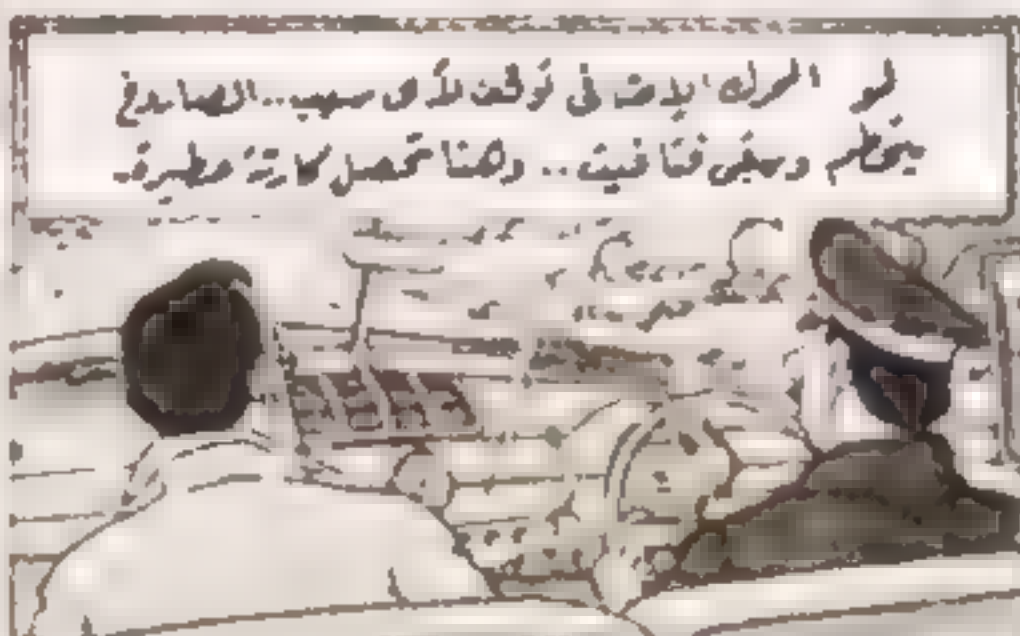 لو المركبات اتوقفت لأى سبب .. الصاروخ
يتحطم ويبقى فتافيت .. وهنا تحصل كارثة خطيرة